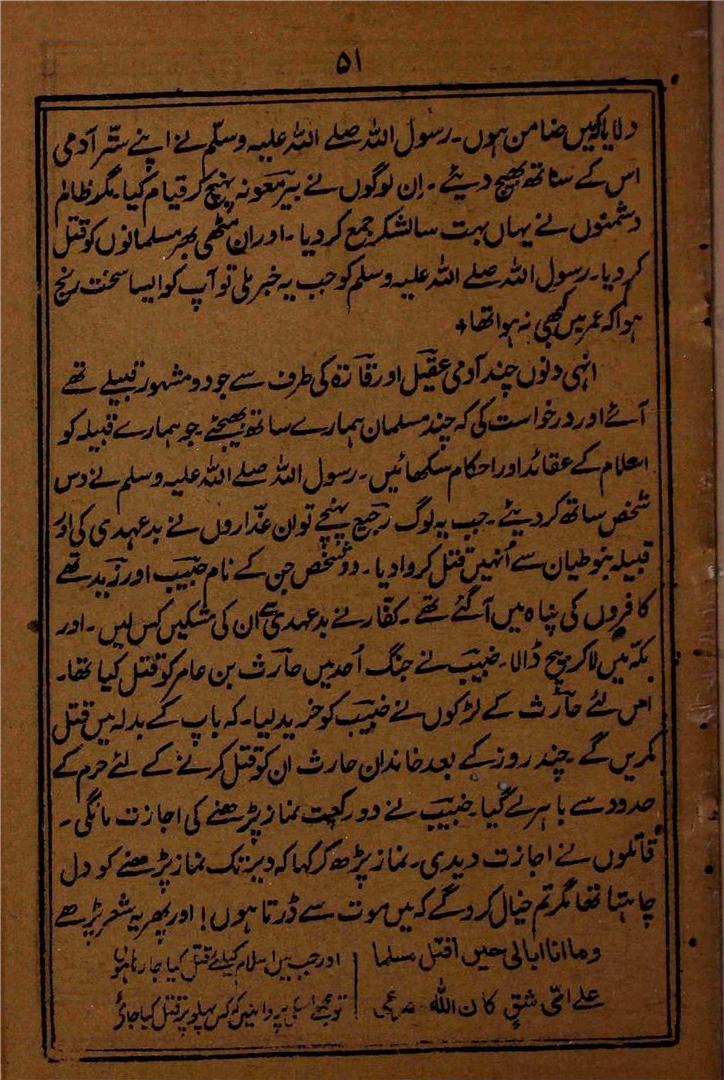 ۵۱
دلایا کہ میں ضامن ہوں۔ رسول اللہ صلے اللہ علیہ وسلم نے اپنے ستر آدمی
اس کے ساتھ بھیج دیئے۔ ان لوگوں نے بیر معونہ پہنچ کر قیام کیا۔ مگر ظالم
دشمنوں نے یہاں بہت سا لشکر جمع کر دیا۔ اور ان مٹھی بھر مسلمانوں کو قتل
کر دیا۔ رسول اللہ صلے اللہ علیہ وسلم کو جب یہ خبر ملی تو آپ کو ایسا سخت رنج
ہوا کہ عمر میں کبھی نہ ہوا تھا+
انہی دنوں چند آدمی عقیل اور قازہ کی طرف سے جو دو مشہور قبیلے تھے
آئے اور درخواست کی کہ چند مسلمان ہمارے ساتھ بھیجئے جو ہمارے قبیلہ کو
اسلام کے عقائد اور احکام سکھائیں۔ رسول اللہ صلے اللہ علیہ وسلم نے دس
شخص ساتھ کر دیئے۔ جب یہ لوگ رجیع پہنچے تو ان غداروں نے بدعہدی کی اور
قبیلہ بنو طیان سے اُنہیں قتل کروا دیا۔ دو شخص جن کے نام خبیب اور زید تھے
کافروں کی پناہ میں آگئے تھے۔ کفار نے بدعہدی سے ان کی مشکیں کس لیں۔ اور
مکہ میں لا کر بیچ ڈالا۔ خبیب نے جنگ اُحد میں حارث بن عامر کو قتل کیا تھا۔
اس لئے حارث کے لڑکوں نے خبیب کو خرید لیا۔ کہ باپ کے بدلہ میں قتل
کریں گے۔ چند روز کے بعد خاندان حارث ان کو قتل کرنے کے لئے حرم کے
حدود سے باہر لے گیا۔ خبیب نے دو رکعت نماز پڑھنے کی اجازت مانگی۔
قاتلوں نے اجازت دیدی۔ نماز پڑھ کر کہا کہ دیر تک نماز پڑھنے کو دل
چاہتا تھا مگر تم خیال کرو گے کہ میں موت سے ڈرتا ہوں! اور پھر یہ شعر پڑھے
وما انا ابالی حین اقتل مسلما | اور جب میں اسلام کیلئے قتل کیا جا رہا ہوں
علے ای شق کان اللہ مصرعی | تو مجھے اسکی پروا نہیں کہ کس پہلو پر قتل کیا جاؤں